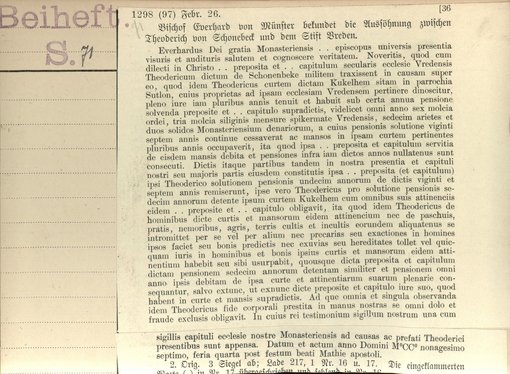 Beiheft.
S. 71
1298 (97) Febr. 26. [36
Bischof Everhard von Münster bekundet die Aussöhnung zwischen
Theoderich von Schonebeck und dem Stift Vreden.
Everhardus Dei gratia Monasteriensis . . episcopus universis presentia
visuris et audituris salutem et cognoscere veritatem. Noveritis, quod cum
dilecti in Christo . . preposita et . . capitulum secularis ecclesie Vredensis
Theodericum dictum de Schonenbeke militem traxissent in causam super
eo, quod idem Theodericus curtem dictam Kukelhem sitam in parrochia
Sutlon, cuius proprietas ad ipsam ecclesiam Vredensem pertinere dinoscitur,
pleno iure iam pluribus annis tenuit et habuit sub certa annua pensione
solvenda preposite et . . capitulo supradictis, videlicet omni anno sex moleia
ordei, tria moleia siliginis mensure spikermate Vredensis, sedecim arietes et
duos solidos Monasteriensium denariorum, a cuius pensionis solutione viginti
septem annis continue cessaverat ac mansos in ipsam curtem pertinentes
pluribus annis occupaverit, ita quod ipsa . . preposita et capitulum servitia
de eisdem mansis debita et pensiones infra iam dictos annos nullatenus sunt
consecuti. Dictis itaque partibus tandem in nostra presentia et capituli
nostri seu majoris partis eiusdem constitutis ipsa . . preposita (et capitulum)
ipsi Theoderico solutionem pensionis undecim annorum de dictis viginti et
septem annis remiserunt, ipse vero Theodericus pro solutione pensionis se-
decim annorum detente ipsum curtem Kukelhem cum omnibus suis attinenciis
eidem . . preposite et . . capitulo obligavit, ita quod idem Theodericus de
hominibus dicte curtis et mansorum eidem attinencium nec de pascuis,
pratis, nemoribus, agris, terris cultis et incultis eorundem aliquatenus se
intromittet per se vel per alium nec precarias seu exactiones in homines
ipsos faciet seu bonis predictis nec exuvias seu hereditates tollet vel quic-
quam iuris in hominibus et bonis ipsius curtis et mansorum eidem atti-
nentium habebit seu sibi usurpabit, quousque dicta preposita et capitulum
dictam pensionem sedecim annorum detentam similiter et pensionem omni
anno ipsis debitam de ipsa curte et attinentiarum suarum plenarie con-
sequantur, salvo extunc, ut exnunc dicte preposite et capitulo iure suo, quod
habent in curte et mansis supradictis. Ad que omnia et singula observanda
idem Theodericus fide corporali prestita in manus nostras se omni dolo et
fraude exclusis obligavit. In cuius rei testimonium sigillum nostrum una cum
sigillis capituli ecclesie nostre Monasteriensis ad causas ac prefati Theoderici
presentibus sunt appensa. Datum et actum anno Domini MºCCº nonagesimo
septimo, feria quarta post festum beati Mathie apostoli.
2. Orig. 3 Siegel ab; Lade 217, 1 Nr. 16 u. 17. Die eingeklammerten